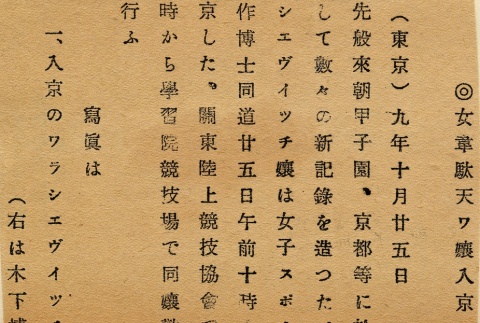 ◎女韋駄天ワ孃入京
(東京)九年十月廿五日
先般來朝甲子園、京都等に於
して數々の新記錄を造つた
シエヴイッチ孃は女子スポ
作博士同道廿五日午前十時
京した。關東陸上競技協會
時から學習院競技場で同孃
行ふ
寫眞は
一、入京のワラシエヴイッチ
(右は木下博